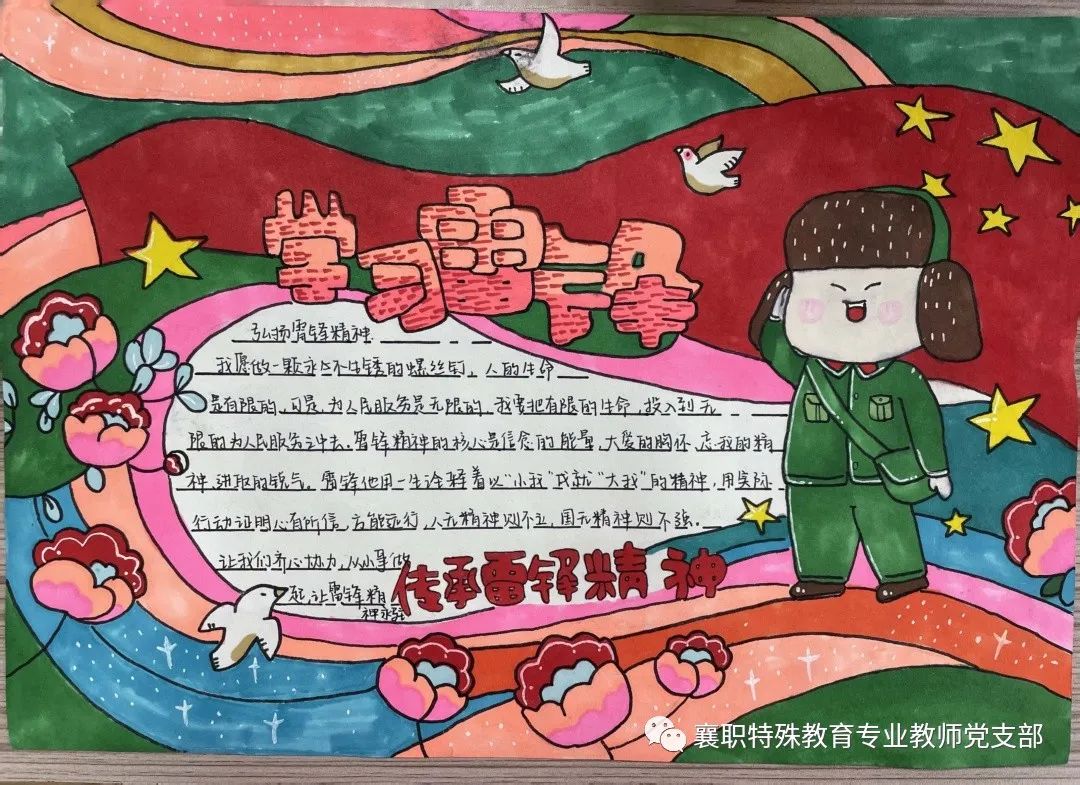 学习雷锋
弘扬雷锋精神
我愿做一颗永不生锈的螺丝钉，人的生命
是有限的，可是，为人民服务是无限的，我要把有限的生命，投入到无
限的为人民服务之中去。雷锋精神的核心是信念的能量，大爱的胸怀，忘我的精
神，进取的锐气。雷锋他用一生诠释着以“小我”成就“大我”的精神，用实际
行动证明心有所信，方能远行，人无精神则不立，国无精神则不强。
让我们齐心协力，从小事做
起，让雷锋精
神永驻
传承雷锋精神
襄职特殊教育专业教师党支部